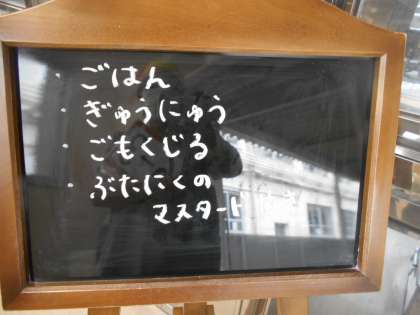 ・ごはん
・ぎゅうにゅう
・ごもくじる
・ぶたにくの
マスタード